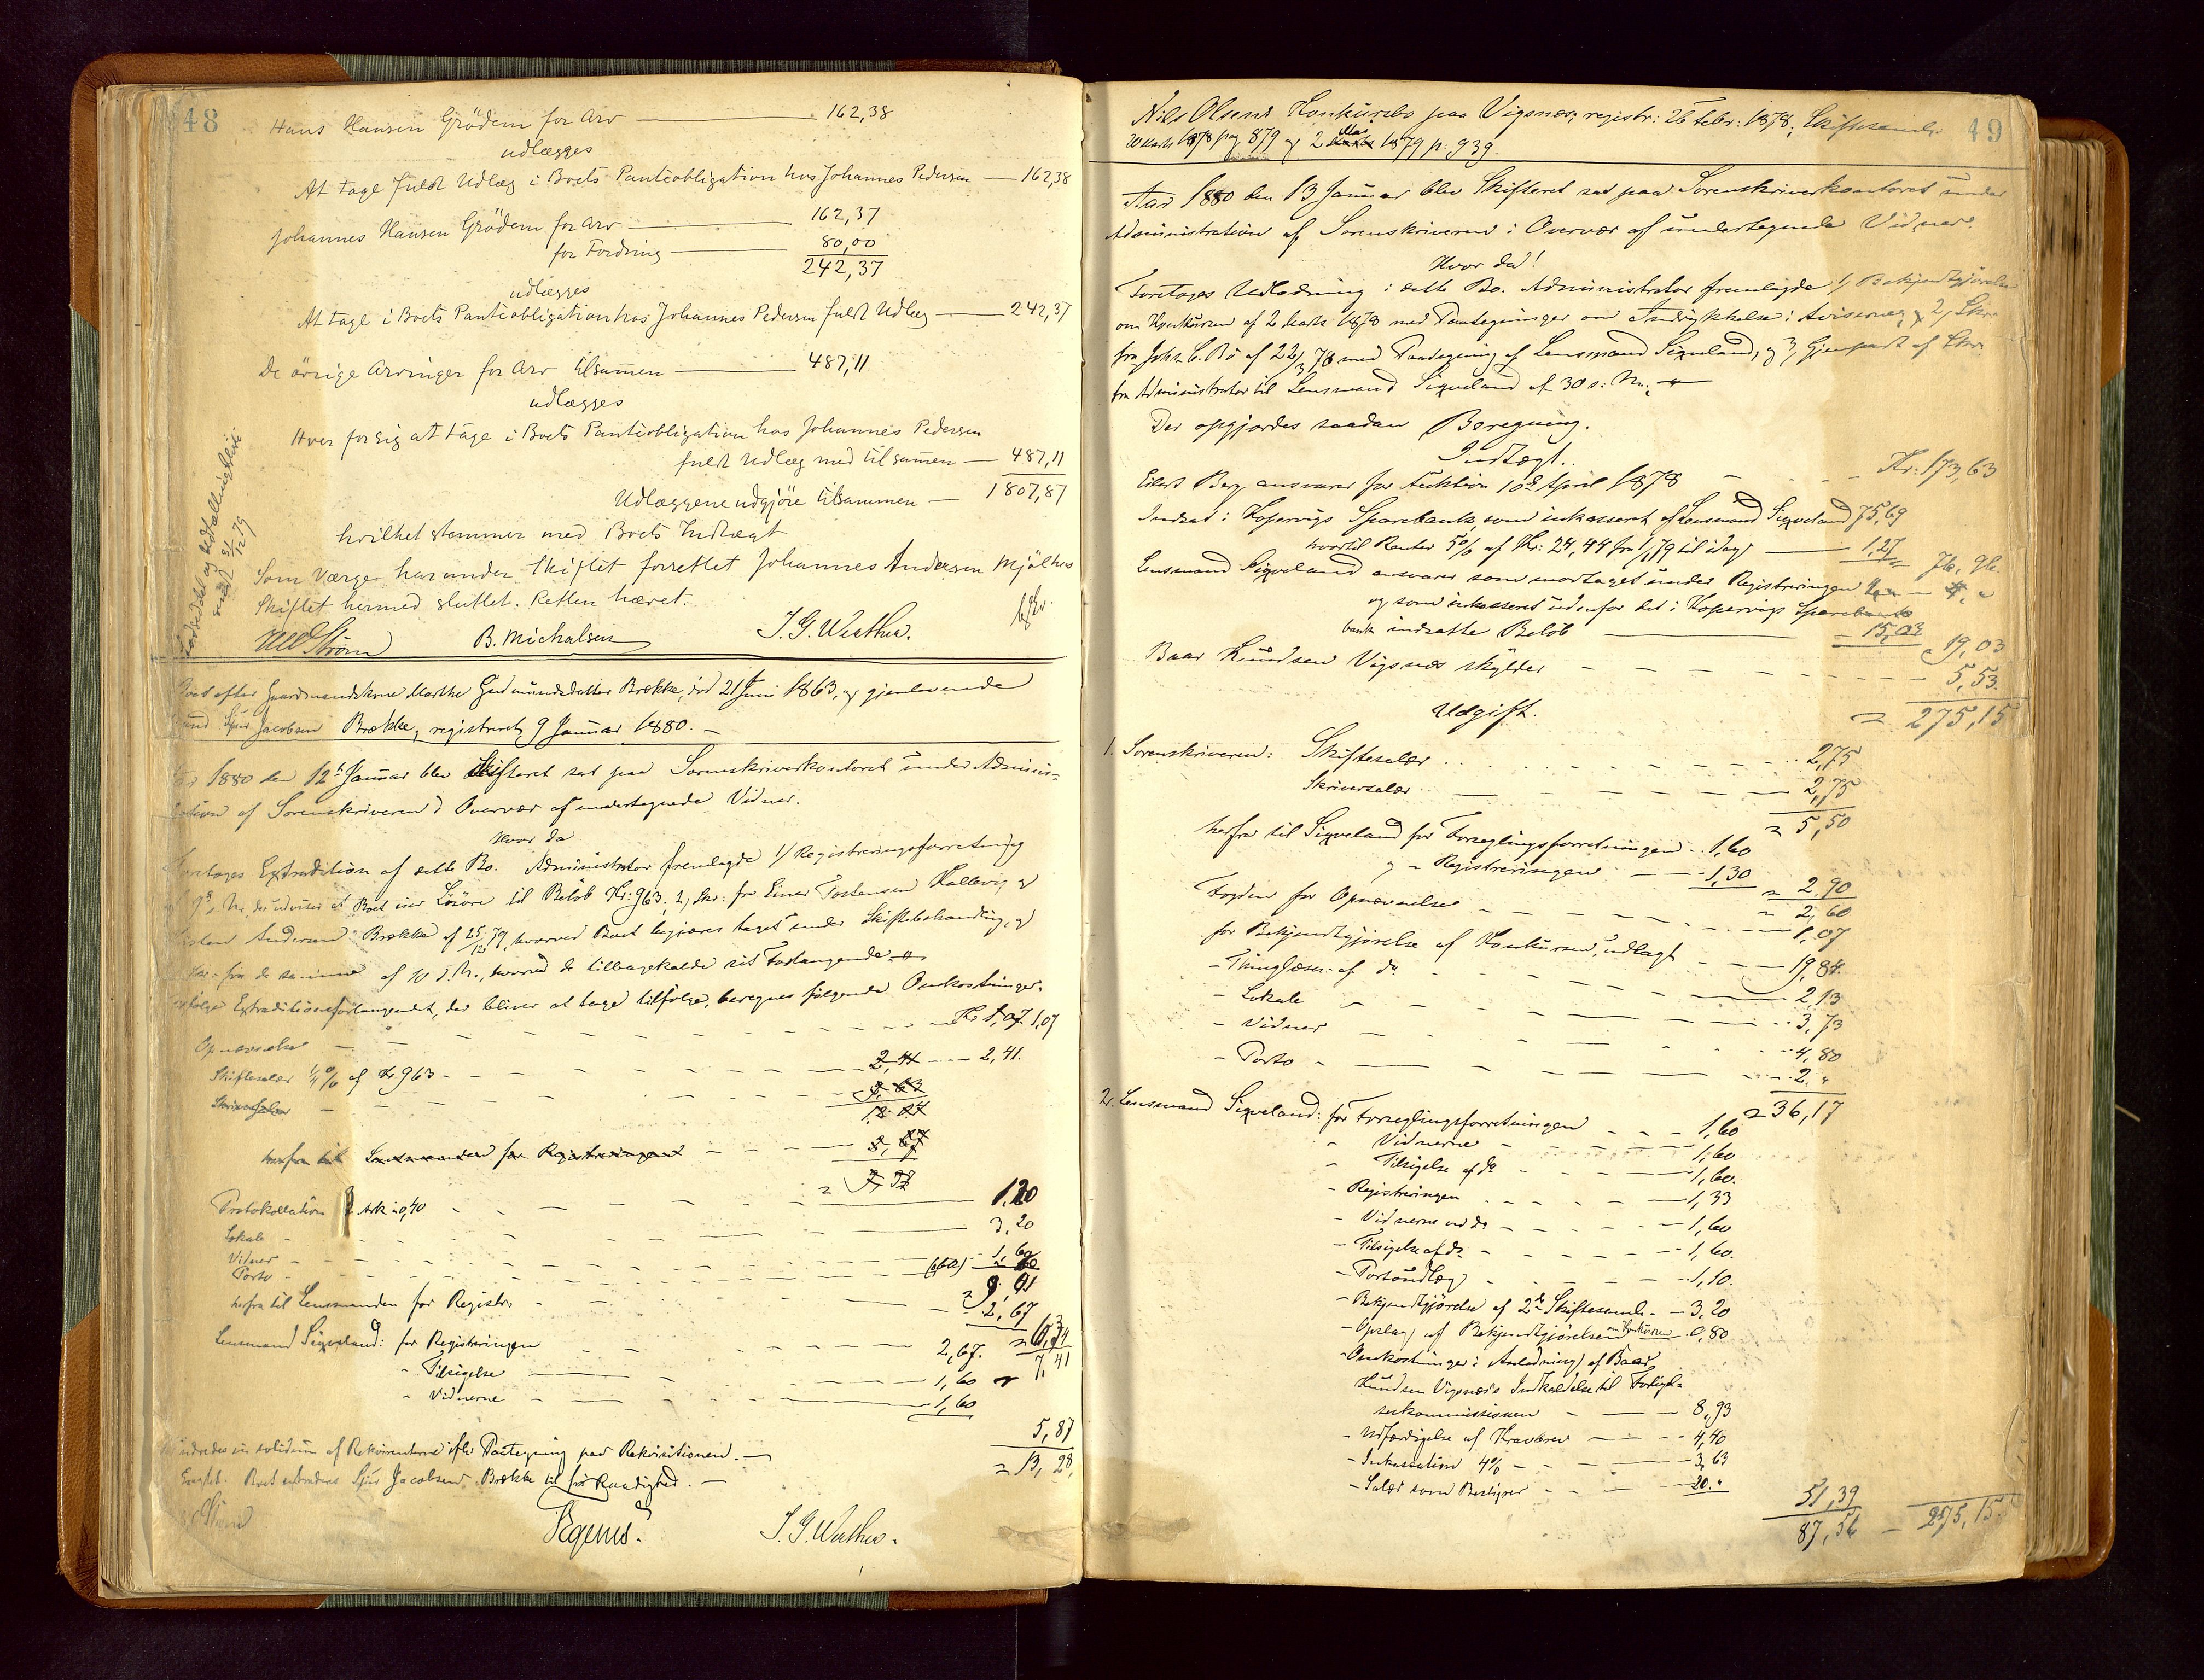 48
Hans Hansen Grödem for Arv — 162,38
udlægges
At tage fuldt Udlæg i Boets Pantiobligation hos Johannes Pedersen — 162,38
Johannes Hansen Grödem for Arv — 162,37
for Fordring — 80,00
242,37
udlægges
At tage i Boets Pantiobligation hos Johannes Pedersen fuldt Udlæg — 242,37
De övrige Arvinger for Arv tilsammen — 487,11
udlægges
Hver for sig at tage i Boets Pantiobligation hos Johannes Pedersen
fuldt Udlæg med tilsammen — 487,11
Udlæggene udgjöre tilsammen — 1807,87
hvilket stemmer med Boets Indtægt
Som Værge har under Skiftet forrettet Johannes Andersen Mjölhus
Skiftet hermed sluttet. Retten hævet.
Ström B. Michalsen J. G. Wathne.
sendt 31/12 79
Boet efter Gaardmandskone Marthe Gudmundsdatter Brække, död 21 Juni 1863, og gjenlevende
Mand Sjur Jacobsen Brække, registreret 9 Januar 1880. —
Aar 1880 den 12te Januar blev Skifteret sat paa Sorenskriverkontoret under Adminis-
tration af Sorenskriveren i Overvær af undertegnede Vidner.
Hvor da
Foretoges Extradition af dette Bo. Administrator fremlagde 1/ Registreringsforretning
af 9de s. M., der udviser at Boet eier Lösöre til Belöb Kr. 963, 2, Skr: fra Einer Tostensen Hallevig og
Andersen Brække af 25/12 79, hvorved Boet begjæres taget under Skiftebehandling, og
Skr. fra de samme af 10 d. M., hvorved de tilbagekalde sit Forlangende.
Ifölge Extraditionsforlangendet, der bliver at tage tilfölge, beregnes fölgende Omkostninger.
Opnævnelse — Kr. 1,07 1,07
Skiftesalær 1/4 % af Kr 963 — 2,41 — 2,41.
Skriversalær — 9,63
herfra til Lensmanden for Registreringen — 2,67
Protokollation 3 Ark à 0,40 — 1,20
Lokale — 3,20
Vidner — 1,60
Porto —
9,41
herfra til Lensmanden for Registr. — 2,67
7,41
Lensmand Sigveland: for Registreringen — 2,67.
" Tilsigelse — 1,60
" Vidnerne — 1,60
5,87
in solidum af Rekvirenterne efter Paategning paa Rekvisitionen. —
= 13,28.
Boet extraderes Sjur Jacobsen Brække til fri Raadighed. —
J. G. Wathne.
49
Nils Olsens Konkursbo paa Vigsnæs, registr: 26 Febr: 1878, Skiftesaml:
20 Marts 1878 pag 879 og 2 Mai 1879 p: 939.
Aar 1880 den 13 Januar blev Skifteret sat paa Sorenskriverkontoret under
Administration af Sorenskriveren i Overvær af undertegnede Vidner.
Hvor da!
Foretoges Udlodning i dette Bo. Administrator fremlagde 1/ Bekjendtgjörelse
om Konkursen af 2 Marts 1878 med Paategninger om Indrykkelse i Aviserne, og 2, Skr.
fra Joh. C. Bö af 22/3 78 med Paategning af Lensmand Sigveland, og 3, Gjenpart af Skr.
fra Administrator til Lensmand Sigveland af 30 s: M.
Der opgjordes saadan Beregning.
Indtægt.
Eilert Berg ansvarer for Auktion 10de April 1878 — Kr. 173,63
Indsat i Kopervigs Sparebank, som inkasseret af Lensmand Sigveland 75,69
hvortil Renter 5 % af Kr. 24,44 fra 1/1 79 til idag — 1,27
76,96
Lensmand Sigveland ansvarer som modtaget under Registreringen 4,"
og som inkasseret udenfor det i Kopervigs Spare-
bank indsatte Belöb — 15,03
19,03
Baar Knudsen Vigsnæs skylder — 5,53.
= 275,15
Udgift.
1. Sorenskriveren: Skiftesalær — 2,75
Skriversalær — 2,75
= 5,50
herfra til Sigveland for Forseglingsforretningen — 1,60
og — Registreringen — 1,30
= 2,90
= 2,60
Fogden for Opnævnelse — 1,07
for Bekjendtgjörelse af Konkursen, udlagt — 19,84
— Thinglæsn. af do — 2,13
— Lokale — 3,73
— Vidner — 4,80
— Porto — 2,"
= 36,17
2. Lensmand Sigveland: for Forseglingsforretningen — 1,60
" Vidnerne — 1,60
" Tilsigelse af do — 1,60.
— Registreringen — 1,33
— Vidnerne ved do — 1,60
— Tilsigelse af do — 1,60.
— Portoudlæg — 1,10.
— Bekjendtgjörelse af 2de Skiftesaml. — 3,20
— Opslag af Bekjendtgjörelsen om Konkursen — 0,80
— Omkostninger i Anledning af Baar
Knudsen Vigsnæs's Indkaldelse til Forligel-
seskommissionen — 8,93
— Udfærdigelse af Kravbrev — 4,40
— Inkassation 4% — 3,63
— Salær som Bestyrer — 20."
51,39
87,56 — 275,15.